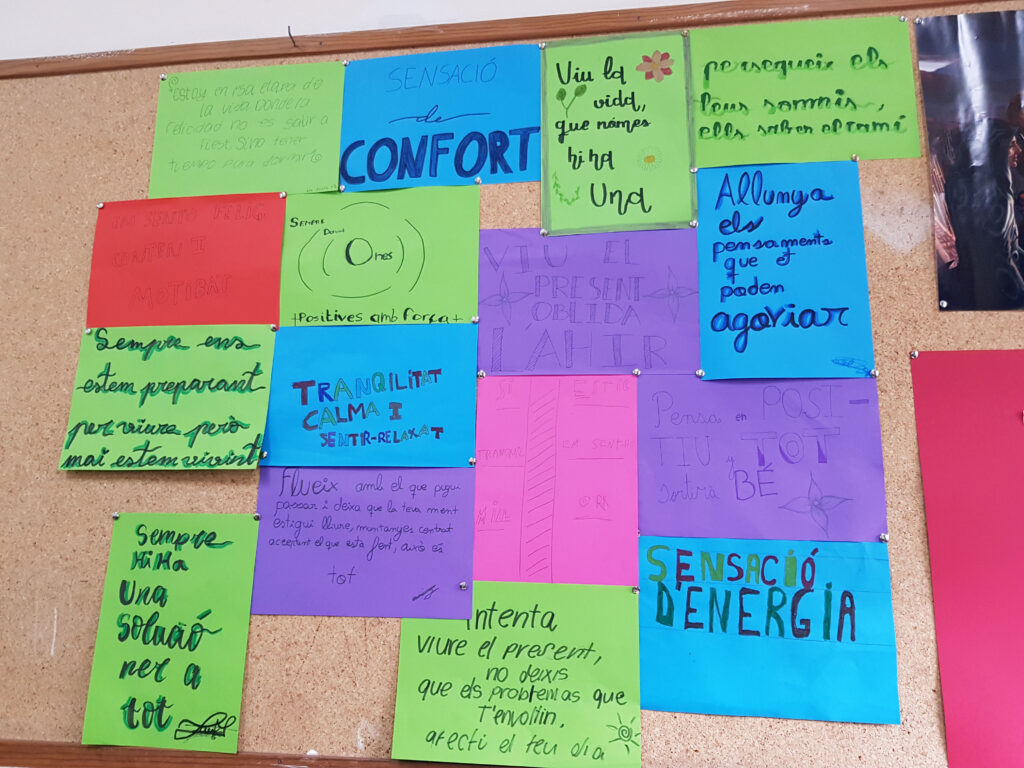 Estoy en esa etapa de
la vida donde la
felicidad no es salir a
fuest, sino tener
tiempo para dormir
SENSACIÓ
de
CONFORT
Viu la
vida,
que només
hi ha
Una
persegueix els
teus somnis,
ells saben el camí
EM SENTO FELIÇ,
CONTEN I
MOTIBAT
SEMPRE
Daval
Ones
+Positives amb força+
VIU EL
PRESENT
OBLIDA
L'AHIR
Allunya
els
pensaments
que et
poden
agoviar
Sempre ens
estem preparant
per viure però
mai estem vivint
TRANQILITAT
CALMA I
SENTIR-RELAXAT
SI
TRANQUIL
EM SENTO
Pensa en POSI-
TIU y TOT
sortirà BÉ
Flueix amb el que pugui
passar i deixa que la teva ment
estigui lliure, muntanyes contrat
acceptant el que esta fent, això és
tot
SENSACIÓ
D'ENERGIA
Sempre
Hi Ha
Una
Solució
per a
tot
Intenta
viure el present,
no deixis
que els problemas que
t'envoltin,
afecti el teu dia